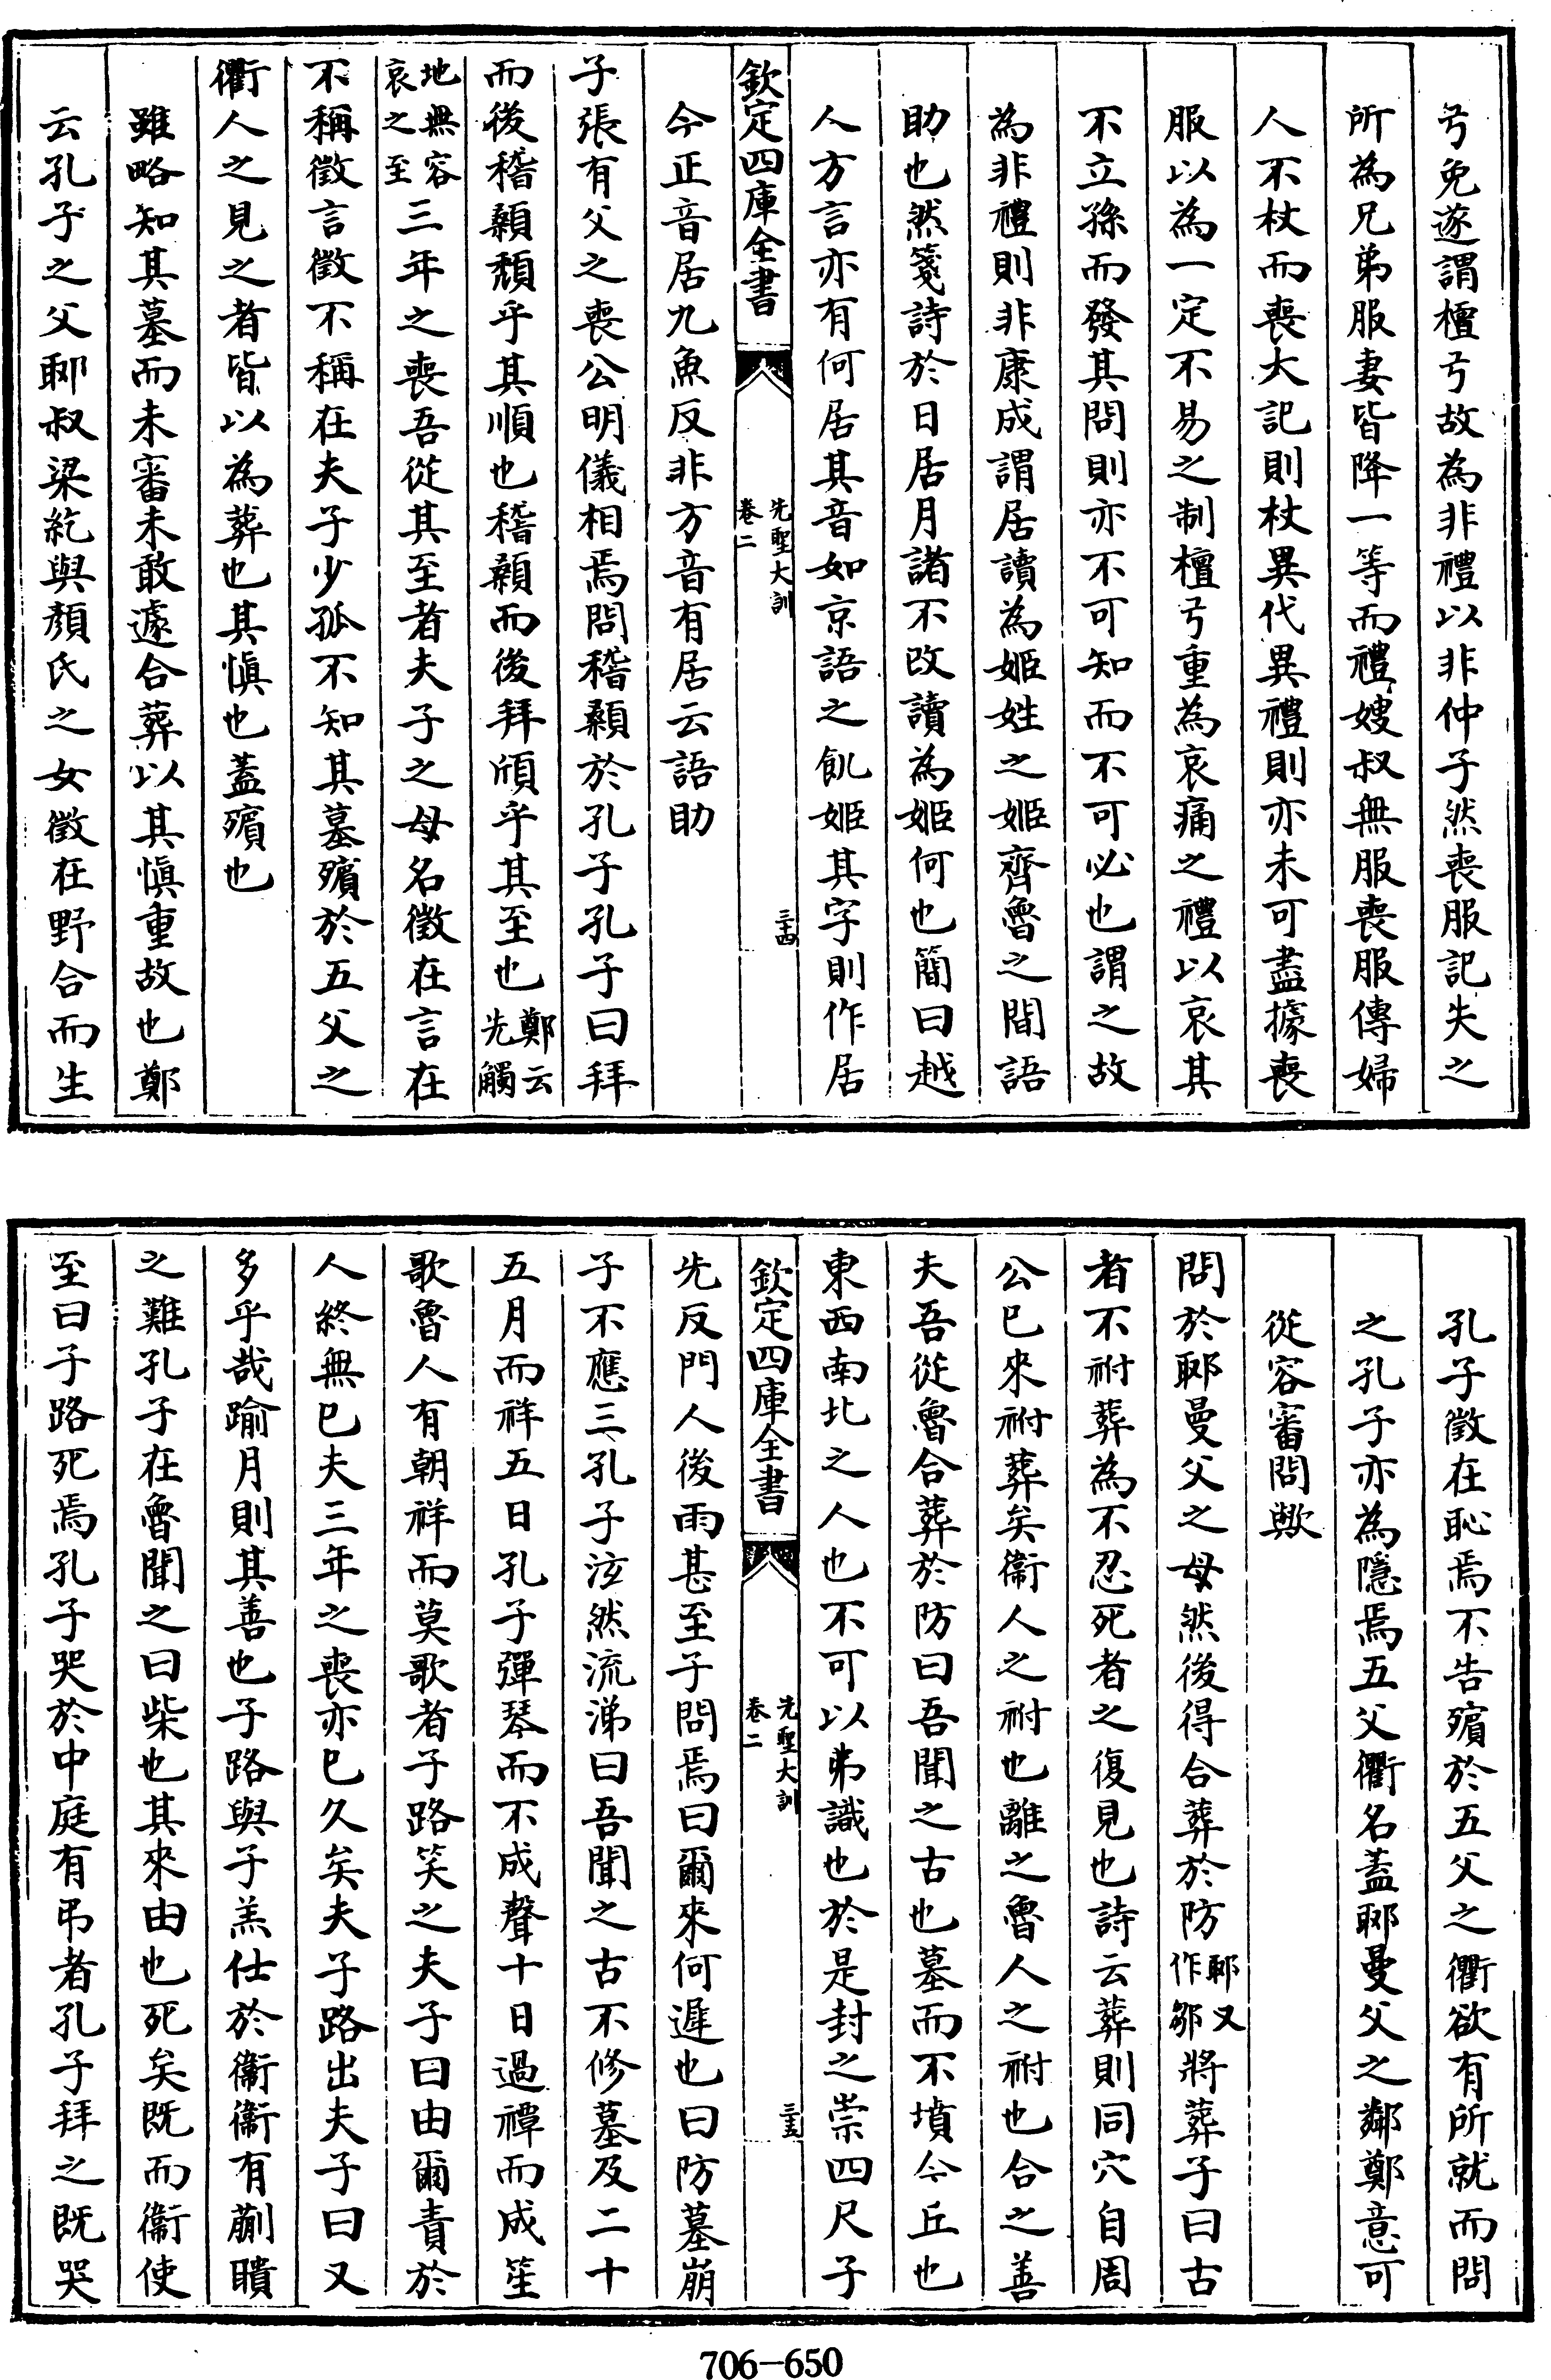 弓免遂謂檀弓故為非禮以非仲子然喪服記夫之
所為兄弟服妻皆降一等而禮嫂叔無服喪服傳婦
人不杖而喪大記則杖異代異禮則亦未可盡據喪
服以為一定不易之制檀弓重為哀痛之禮以哀其
不立孫而發其問則亦不可知而不可必也謂之故
為非禮則非康成謂居讀為姬姓之姬齊魯之間語
助也然箋詩於日居月諸不改讀為姬何也簡曰越
人方言亦有何居其音如京語之飢姬其字則作居
欽定四庫全書
先聖大訓
卷二
三十四
今正音居九魚反非方音有居云語助
子張有父之喪公明儀相焉問稽顙於孔子孔子曰拜
而後稽顙頹乎其順也稽顙而後拜頎乎其至也鄭云先觸
地無容哀之至三年之喪吾從其至者夫子之母名徵在言在
不稱徵言徵不稱在夫子少孤不知其墓殯於五父之
衢人之見之者皆以為葬也其慎也蓋殯也
雖略知其墓而未審未敢遽合葬以其慎重故也鄭
云孔子之父郰叔梁紇與顏氏之女徵在野合而生
孔子徵在恥焉不告殯於五父之衢欲有所就而問
之孔子亦為隱焉五父衢名蓋郰曼父之鄰鄭意可
從容審問歟
問於郰曼父之母然後得合葬於防郰又作鄒將葬子曰古
者不祔葬為不忍死者之復見也詩云葬則同穴自周
公已來祔葬矣衞人之祔也離之魯人之祔也合之善
夫吾從魯合葬於防曰吾聞之古也墓而不墳今丘也
東西南北之人也不可以弗識也於是封之崇四尺子
欽定四庫全書
先聖大訓
卷二
三十五
先反門人後雨甚至子問焉曰爾來何遲也曰防墓崩
子不應三孔子泫然流涕曰吾聞之古不修墓及二十
五月而祥五日孔子彈琴而不成聲十日過禫而成笙
歌魯人有朝祥而莫歌者子路笑之夫子曰由爾責於
人終無已夫三年之喪亦已久矣夫子路出夫子曰又
多乎哉踰月則其善也子路與子羔仕於衞衞有蒯聵
之難孔子在魯聞之曰柴也其來由也死矣既而衞使
至曰子路死焉孔子哭於中庭有弔者孔子拜之既哭
706-650